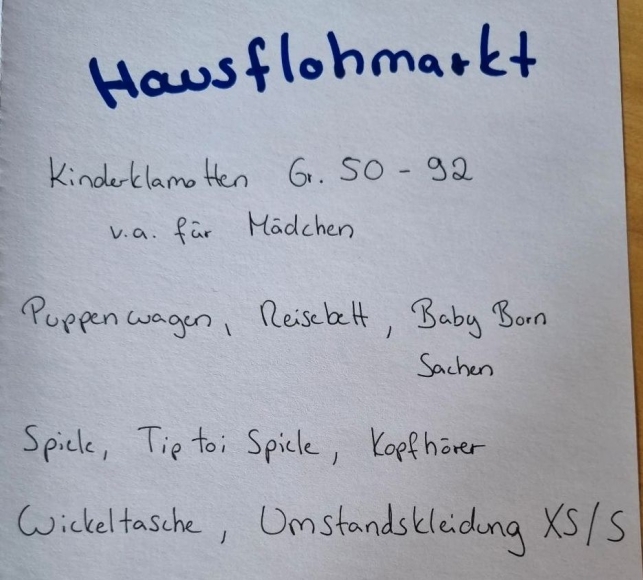 Hausflohmarkt
Kinderklamotten Gr. 50 - 92
v.a. für Mädchen
Puppenwagen, Reisebett, Baby Born
Sachen
Spiele, Tip toi Spiele, Kopfhörer
Wickeltasche, Umstandskleidung XS/S